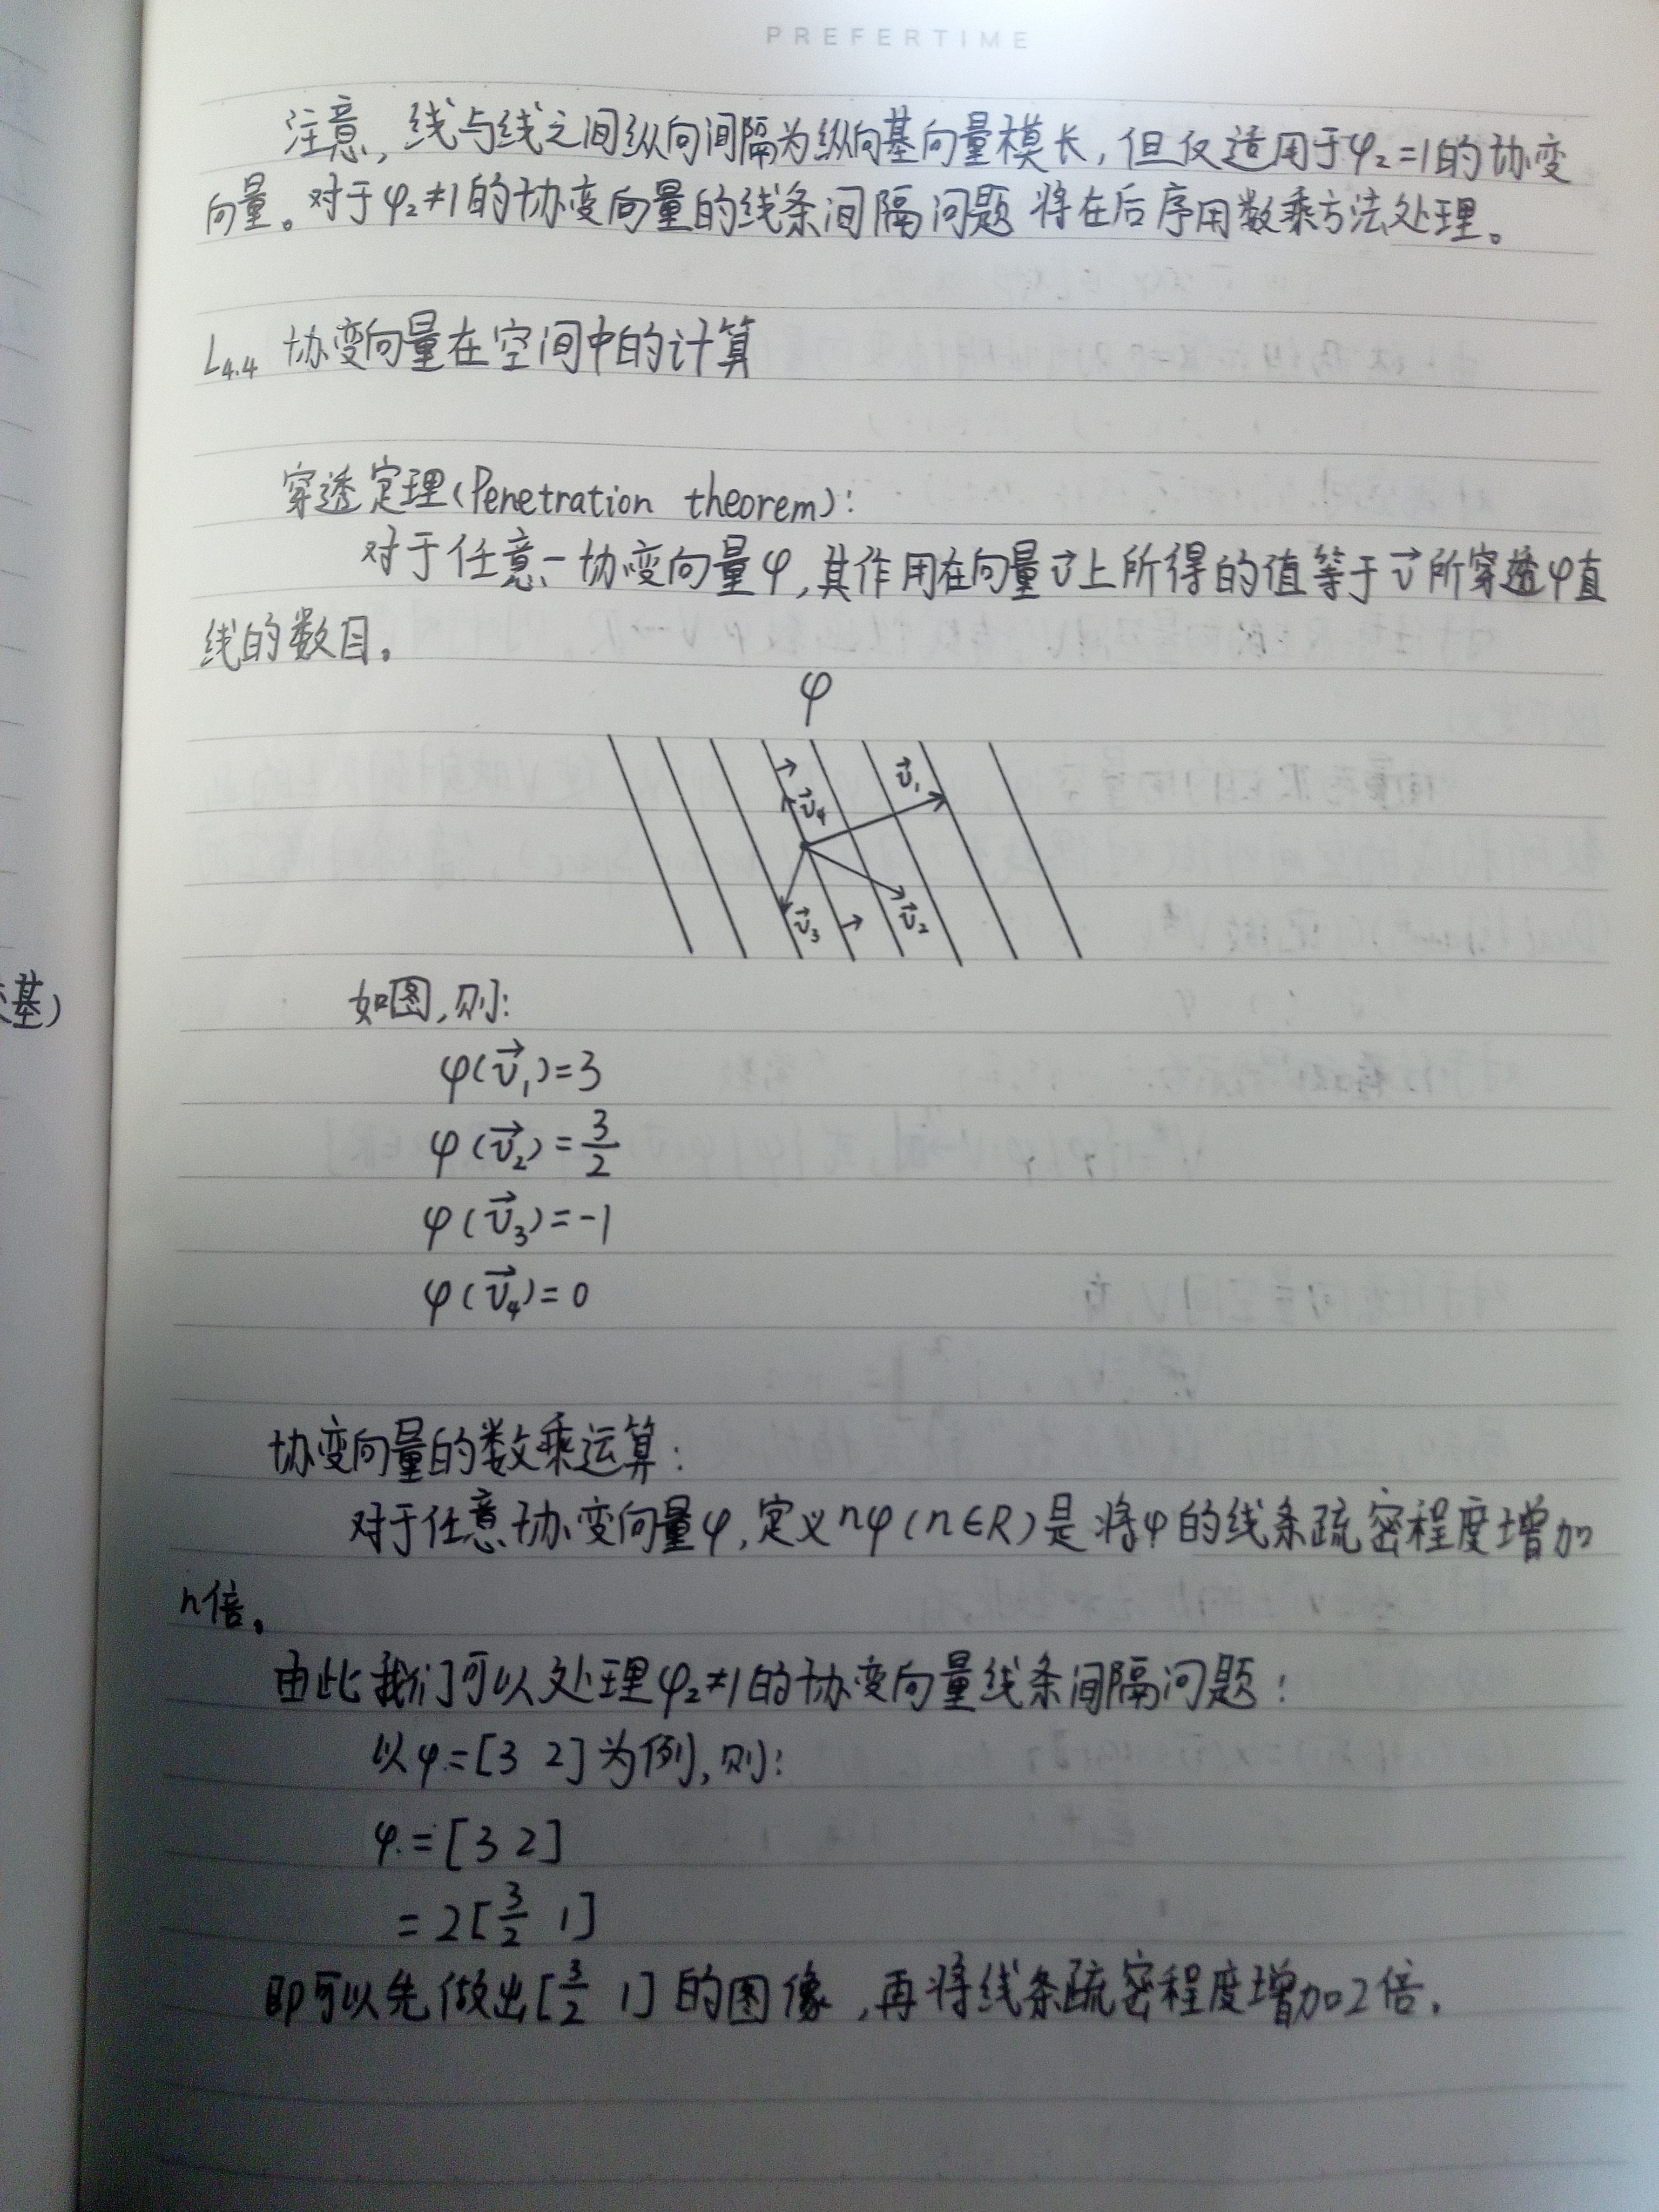 PREFERTIME
注意,线与线之间纵向间隔为纵向基向量模长,但仅适用于φ₂=1的协变
向量。对于φ₂≠1的协变向量的线条间隔问题将在后序用数乘方法处理。
L₄.₄ 协变向量在空间中的计算
穿透定理(Penetration theorem):
对于任意一协变向量φ,其作用在向量v⃗上所得的值等于v⃗所穿透φ直
线的数目。
φ
v⃗₁
v⃗₄
v⃗₃
v⃗₂
基)
如图,则:
φ(v⃗₁)=3
φ(v⃗₂)=3/2
φ(v⃗₃)=-1
φ(v⃗₄)=0
协变向量的数乘运算:
对于任意协变向量φ,定义nφ(n∈R)是将φ的线条疏密程度增加
n倍。
由此我们可以处理φ₂≠1的协变向量线条间隔问题:
以φ=[3 2]为例,则:
φ=[3 2]
=2[3/2 1]
即可以先做出[3/2 1]的图像,再将线条疏密程度增加2倍.